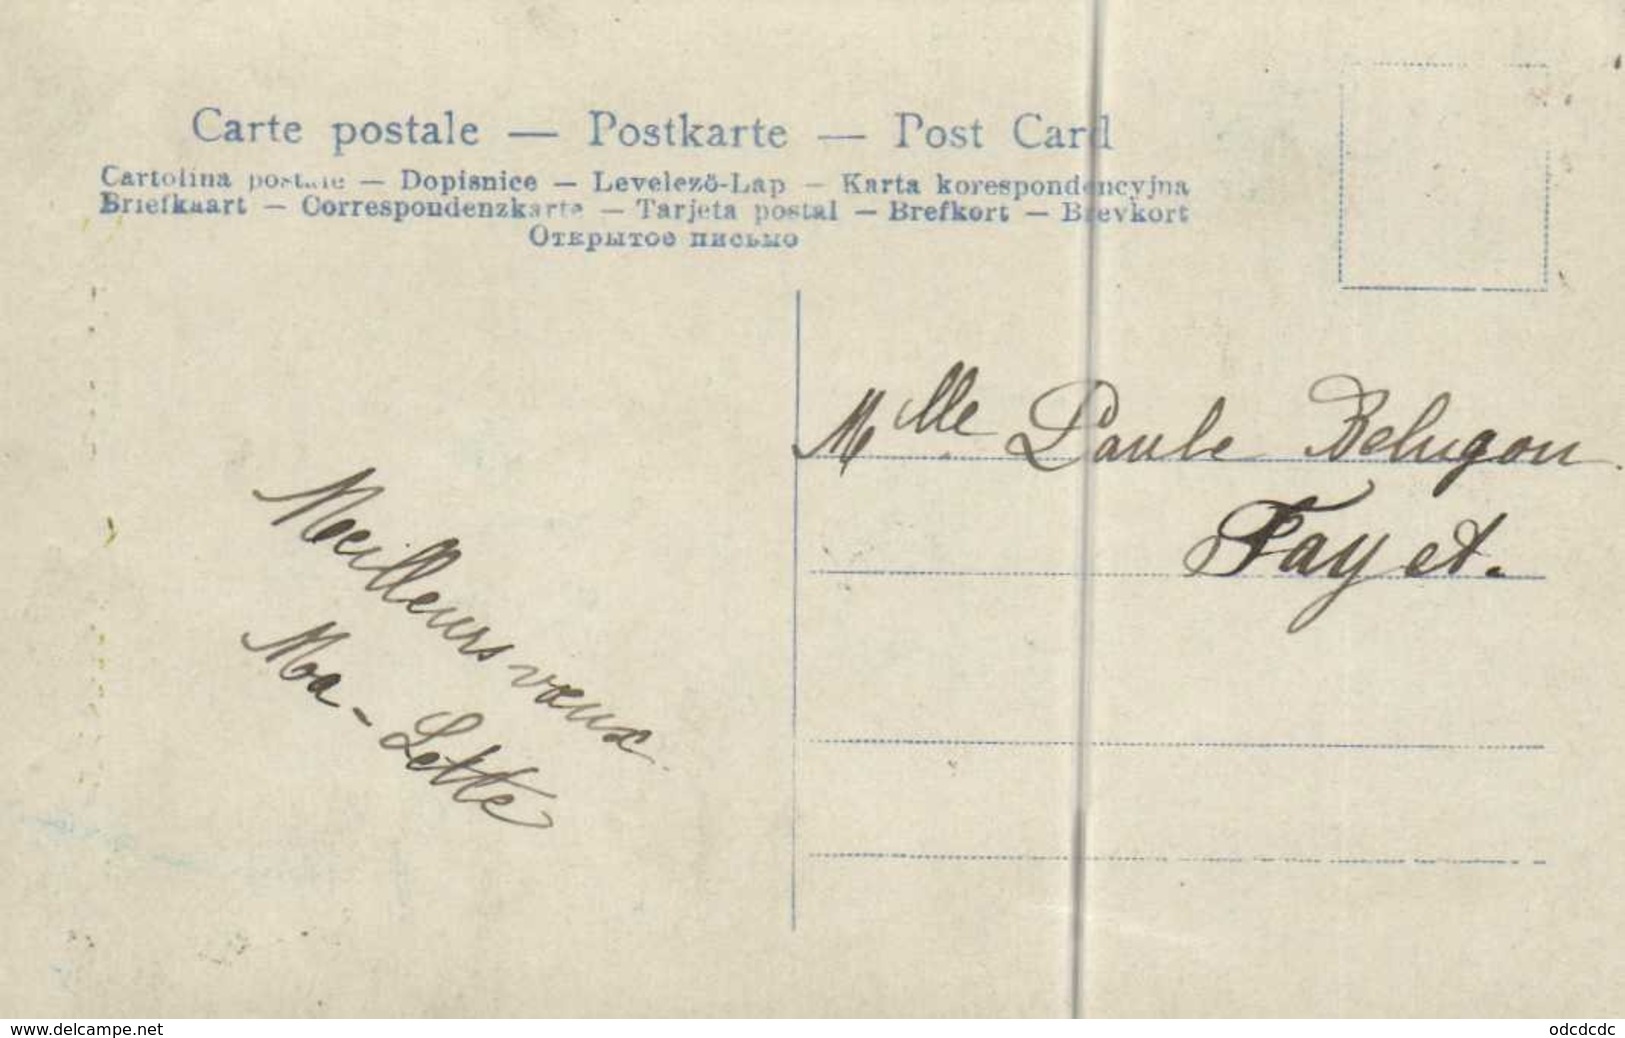 Carte postale — Postkarte — Post Card
Cartolina postale — Dopisnice — Levelező-Lap — Karta korespondencyjna
Briefkaart — Correspondenzkarte — Tarjeta postal — Brefkort — Brevkort
Открытое письмо
Mlle Paule Belugou
Fayet.
Meilleurs vœux
Moa - Lette
www.delcampe.net
odcdcdc